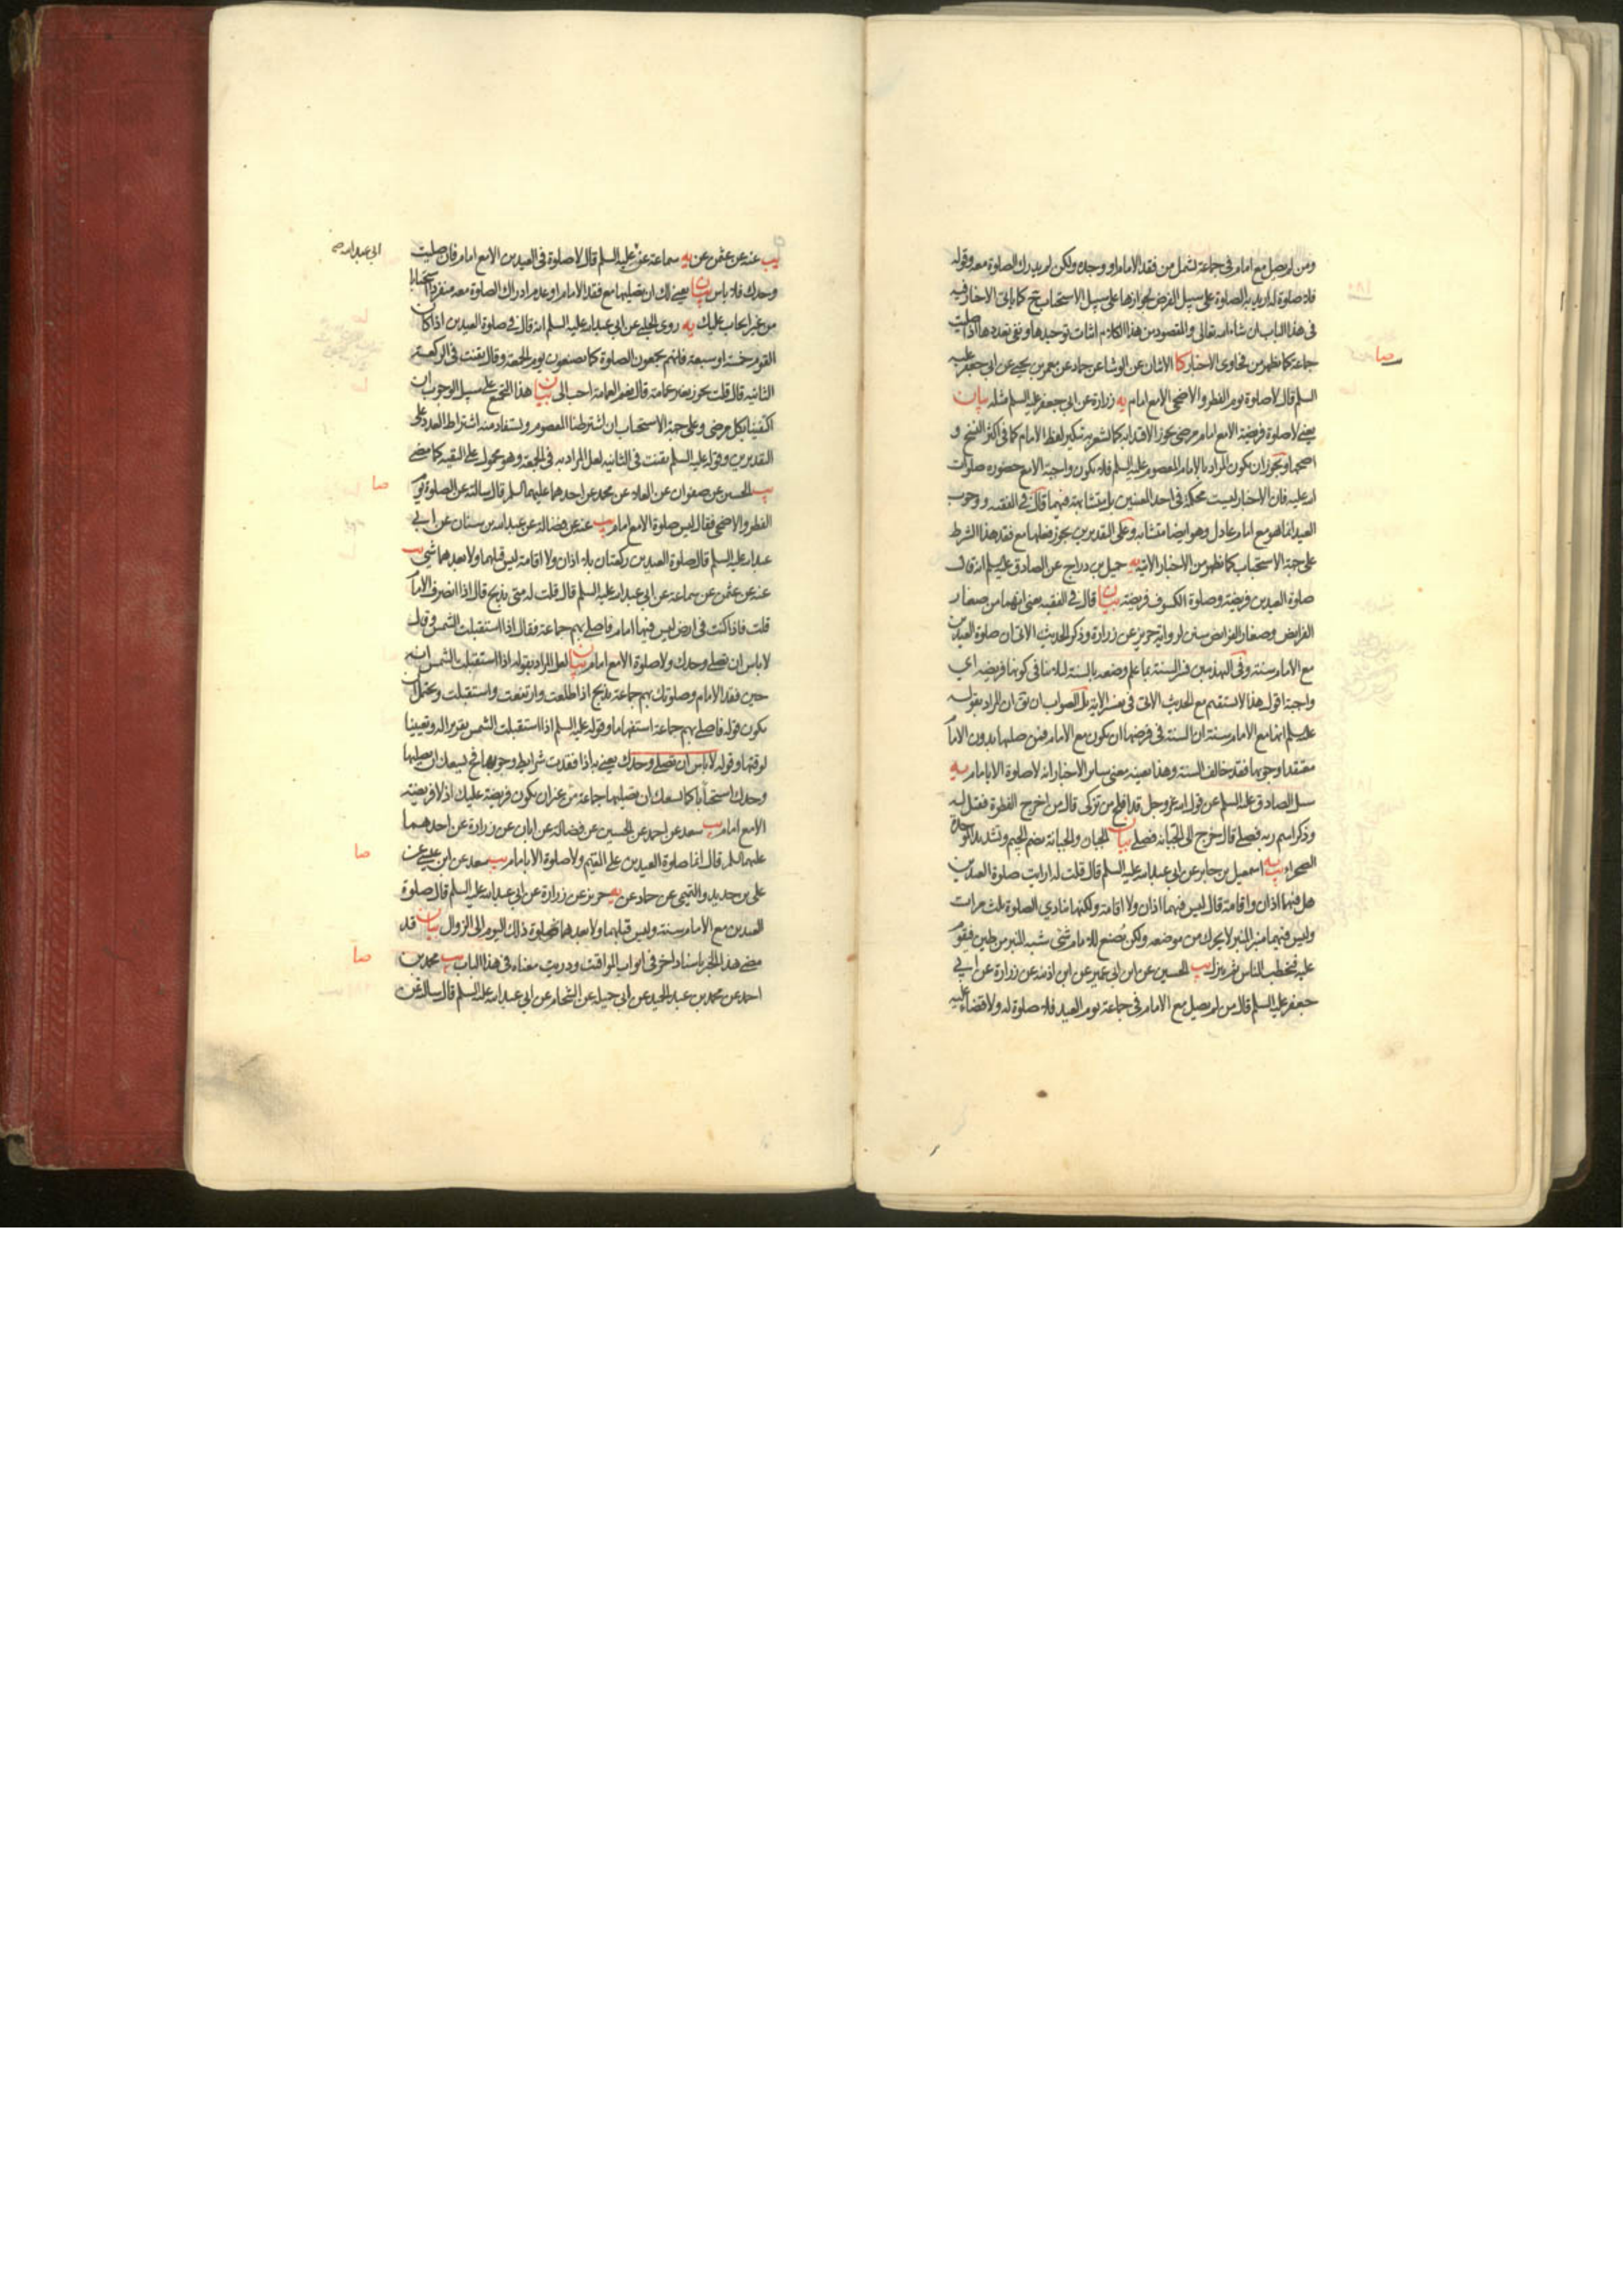 ومن لم يصل مع امام في جماعة يشمل من فقد الامام او وجده ولكن لم يدرك الصلوة معه وقوله
فلا صلوة له اريد به الصلوة على سبيل الفرض لجوازها على سبيل الاستحباب ح كما ياتي الاخبار فيه
في هذا الباب ان شاء الله تعالى والمقصود من هذا الكلام اثبات توحيدها ونفي تعددها اذا صليت
جماعة كما يظهر من فحاوى الاخبار كا الاثنان عن الوشا عن حماد عن معمر بن يحيى عن ابي جعفر عليه
صا
السلم قال لا صلوة يوم الفطر والاضحى الا مع امام يه زرارة عن ابي جعفر عليه السلم مثله بيان
يعني لا صلوة فريضة الا مع امام مرضي يجوز الاقتداء به كما يشعر به تنكير لفظ الامام كما في اكثر النسخ و
اصحها ويجوز ان يكون المراد بالامام المعصوم عليه السلم فلا يكون واجبة الا مع حضوره صلوات
الله عليه فان الاخبار ليست محكمة في احد المعنيين بل متشابهة فيهما قال في الفقيه ووجوب
العيد انما هو مع امام عادل وهو ايضا متشابه وعلى التقديرين يجوز فعلها مع فقد هذا الشرط
على جهة الاستحباب كما يظهر من الاخبار الاتية يه جميل بن دراج عن الصادق عليه السلم انه قال
صلوة العيدين فريضة وصلوة الكسوف فريضة بيان قال في الفقيه يعني انهما من صغار
الفرايض وصغار الفرايض سنن لرواية حريز عن زرارة وذكر الحديث الاتي ان صلوة العيدين
مع الامام سنة وفي التهذيبين فسر السنة بما علم وضعه بالسنة لئلا ينافي كونها فريضة اي
واجبة اقول هذا لا يستقيم مع الحديث الاتي في تفسير الاية بل الصواب ان يق ان المراد بقوله
عليه السلم انها مع الامام سنة ان السنة في فرضها ان يكون مع الامام فمن صلها بدون الامام
معتقدا وجوبها فقد خالف السنة وهذا بعينه معنى ساير الاخبار انه لا صلوة الا بامام يه
سئل الصادق عليه السلم عن قول الله عز وجل قد افلح من تزكى قال من اخرج الفطرة فقيل له
وذكر اسم ربه فصلى قال خرج الى الجبانة فصلى بيان الجبان والجبانة بضم الجيم وتشديد الموحدة
الصحراء يب يه اسمعيل بن جابر عن ابي عبد الله عليه السلم قال قلت له ارايت صلوة العيدين
هل فيهما اذان واقامة قال ليس فيهما اذان ولا اقامة ولكنها ينادي الصلوة ثلث مرات
وليس فيهما منبر المنبر لا يحرك من موضعه ولكن يصنع للامام شئ شبه المنبر من طين فيقوم
عليه فيخطب الناس ثم ينزل يب الحسين عن ابن ابي عمير عن ابن اذينة عن زرارة عن ابي
جعفر عليه السلم قال من لم يصل مع الامام في جماعة يوم العيد فلا صلوة له ولا قضاء عليه
يب عنه عن عثمن عن يه سماعة عنه عليه السلم قال لا صلوة في العيدين الا مع امام فان صليت
ابي عبد الله
وحدك فلا باس بيان يعني لك ان تصليها مع فقد الامام او عدم ادراك الصلوة معه منفردا استحبابا
من غير ايجاب عليك يه روى الحلبي عن ابي عبد الله عليه السلم انه قال في صلوة العيدين اذا كان
القوم خمسة او سبعة فانهم يجمعون الصلوة كما يصنعون يوم الجمعة وقال يقنت في الركعة
الثانية قال قلت يجوز بغير عمامة قال نعم العمامة احب الى بيان هذا التجمع على سبيل الوجوب ان
اكتفينا بكل مرضي وعلى جهة الاستحباب ان اشترطنا المعصوم ويستفاد منه اشتراط العدد على
التقديرين وقوله عليه السلم يقنت في الثانية لعل المراد به في الجمعة وهو محمول على التقية كما مضى
يب الحسين عن صفوان عن العلاء عن محمد عن احدهما عليهما السلم قال سالته عن الصلوة يوم
صا
الفطر والاضحى فقال ليس صلوة الا مع امام يب عنه عن فضالة عن عبد الله بن سنان عن ابي
عبد الله عليه السلم قال صلوة العيدين ركعتان بلا اذان ولا اقامة ليس قبلهما ولا بعدهما شئ يب
عنه عن عثمن عن سماعة عن ابي عبد الله عليه السلم قال قلت له متى يذبح قال اذا انصرف الامام
قلت فاذا كنت في ارض ليس فيها امام فاصلي بهم جماعة فقال اذا استقبلت الشمس وقال
لا باس ان تصلي وحدك ولا صلوة الا مع امام بيان لعل المراد بقوله اذا استقبلت الشمس انه
حين فقد الامام وصلوتك بهم جماعة يذبح اذا طلعت وارتفعت واستقبلت ويحتمل ان
يكون قوله فاصلي بهم جماعة استفهاما وقوله عليه السلم اذا استقبلت الشمس تقريرا له وتعيينا
لوقتها وقوله لا باس ان تصلي وحدك يعني به اذا فقدت شرايط وجوبها فح يسعك ان تصليها
وحدك استحبابا كما يسعك ان تصليها جماعة من غير ان يكون فريضة عليك اذ لا فريضة
الا مع امام يب سعد عن احمد عن الحسين عن فضالة عن ابان عن زرارة عن احدهما
عليهما السلم قال انما صلوة العيدين على المقيم ولا صلوة الا بامام يب سعد عن ابن عيسى عن
صا
علي بن حديد والتميمي عن حماد عن يه حريز عن زرارة عن ابي عبد الله عليه السلم قال صلوة
العيدين مع الامام سنة وليس قبلهما ولا بعدهما صلوة ذلك اليوم الى الزوال بيان قد
مضى هذا الخبر باسناد اخر في ابواب المواقيت ودريت معناه في هذا الباب يب محمد بن
صا
احمد عن محمد بن عبد الحميد عن ابي جميلة عن الشحام عن ابي عبد الله عليه السلم قال سالته عن